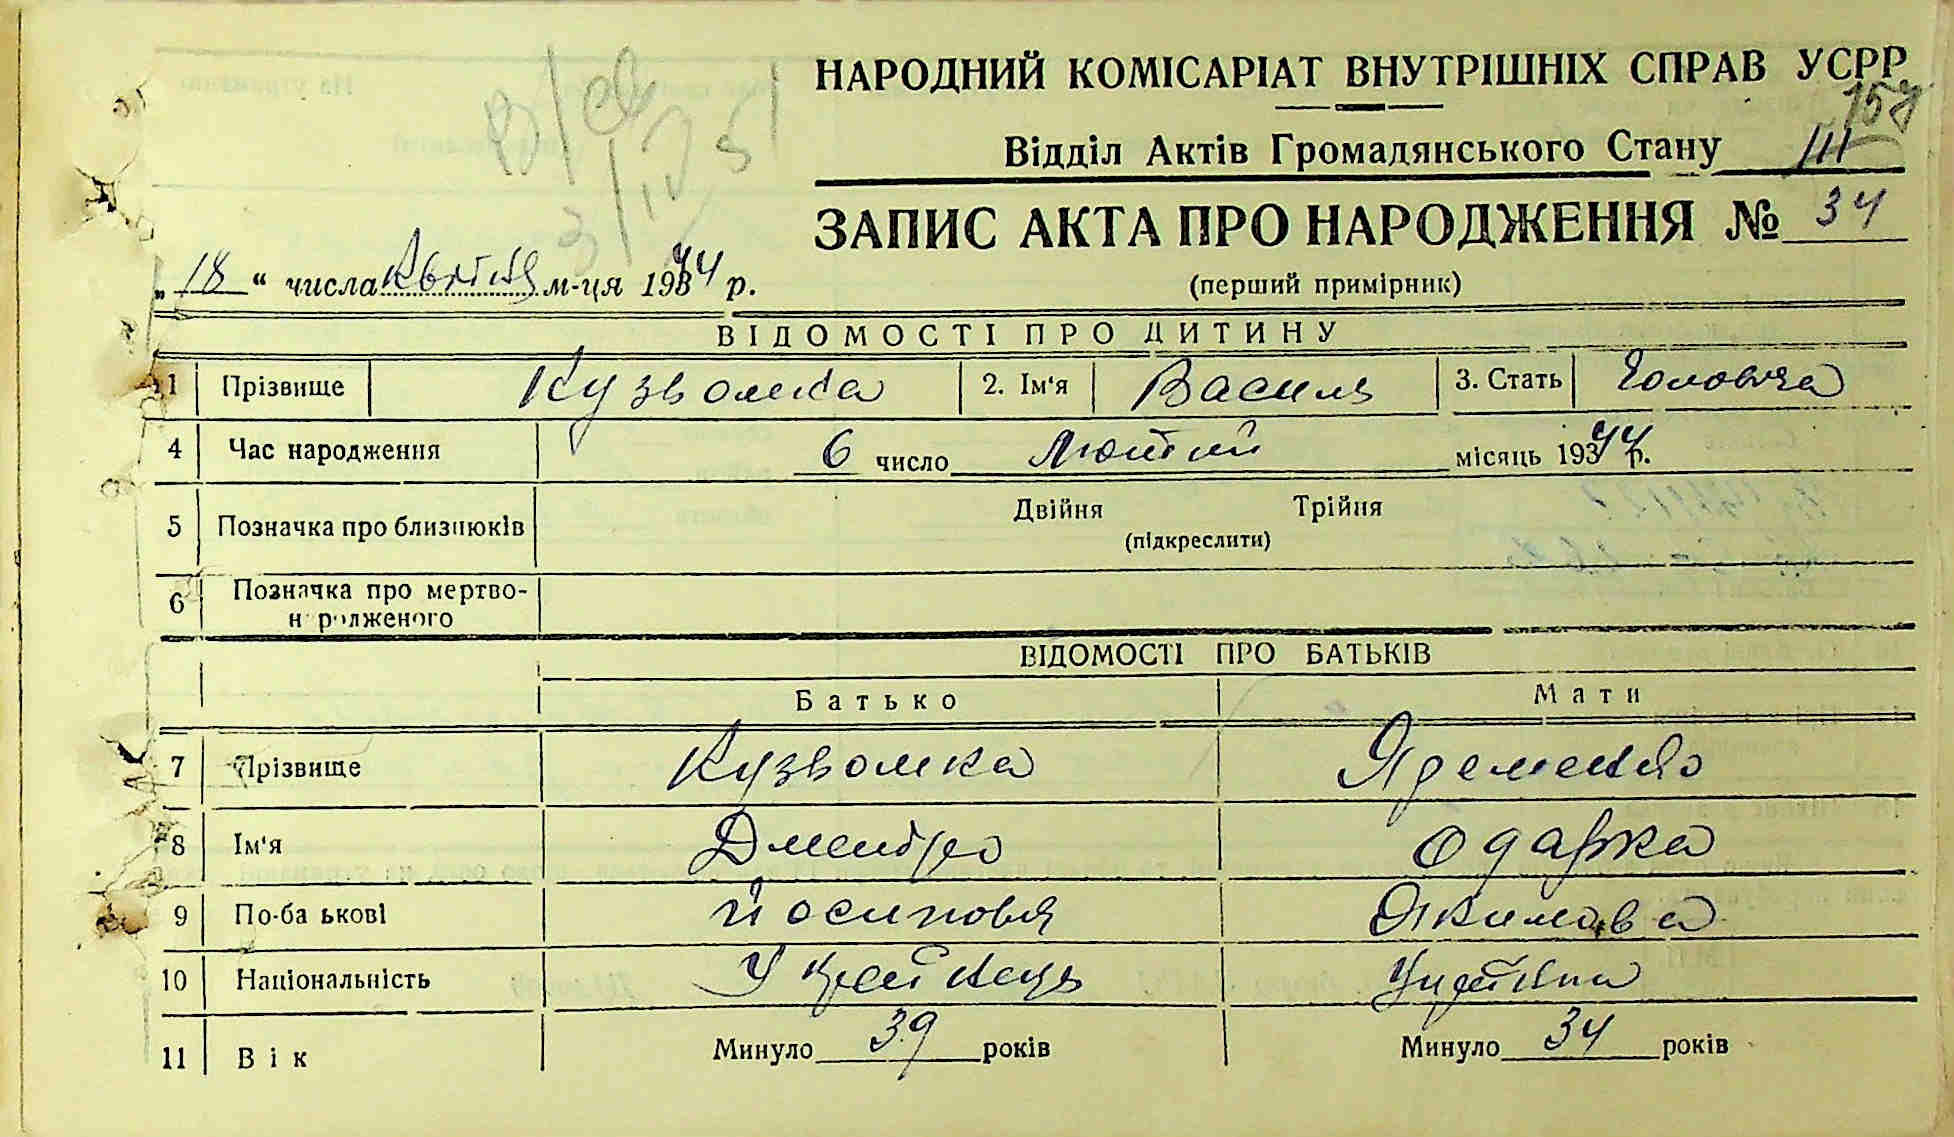 НАРОДНИЙ КОМІСАРІАТ ВНУТРІШНІХ СПРАВ УСРР
157
Відділ Актів Громадянського Стану III
ЗАПИС АКТА ПРО НАРОДЖЕННЯ № 34
„18“ числа Квітня м-ця 1944 р.
(перший примірник)
ВІДОМОСТІ ПРО ДИТИНУ
1 Прізвище Кузьомка 2. Ім'я Василь 3. Стать Чоловіча
4 Час народження 6 число Лютий місяць 1944 р.
5 Позначка про близнюків Двійня Трійня
(підкреслити)
6 Позначка про мертво-
н родженого
ВІДОМОСТІ ПРО БАТЬКІВ
Батько Мати
7 Прізвище Кузьомка Яременко
8 Ім'я Дмитро Одарка
9 По-ба ькові Йосиповя Якимова
10 Національність Українець
11 Вік Минуло 39 років Минуло 34 років